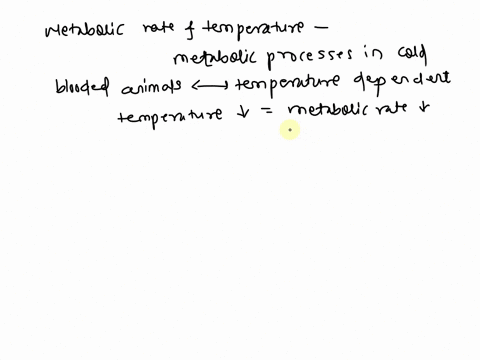 Metabolic rate & temperature -
metabolic processes in cold
blooded animals ⟷ temperature dependent
temperature ↓ = metabolic rate ↓